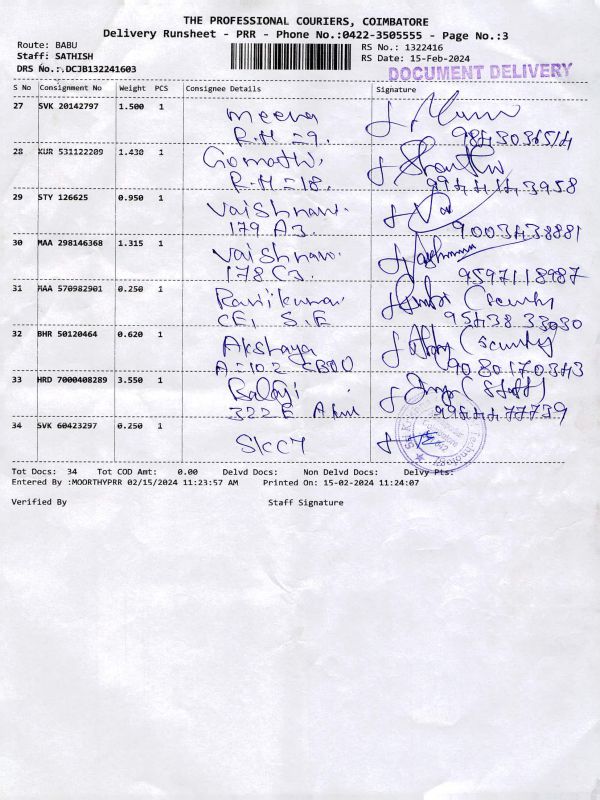 THE PROFESSIONAL COURIERS, COIMBATORE
Delivery Runsheet - PRR - Phone No.:0422-3505555 - Page No.:3
Route: BABU
Staff: SATHISH
DRS No.:.DCJB132241603
RS No.: 1322416
RS Date: 15-Feb-2024
DOCUMENT DELIVERY
S No Consignment No Weight PCS Consignee Details Signature
27 SVK 20142797 1.500 1 Meena
R.M =9.
28 KUR 531122209 1.430 1 Gomathi.
R.M =18.
29 STY 126625 0.950 1 Vaishnavi.
179 A3. 9003438881
30 MAA 298146368 1.315 1 Vaishnavi.
178 C3. 9597118987
31 MAA 570982901 0.250 1 Ravikumar (Scurity
CE, S.E 9543833030
32 BHR 50120464 0.620 1 Akshaya (Scurity
A=102 9080170343
33 HRD 7000408289 3.550 1 Balaji (Staff)
322 E 9944477739
34 SVK 60423297 0.250 1 SKCT
Tot Docs: 34 Tot COD Amt: 0.00 Delvd Docs: Non Delvd Docs: Delvy Pts:
Entered By :MOORTHYPRR 02/15/2024 11:23:57 AM Printed On: 15-02-2024 11:24:07
Verified By Staff Signature